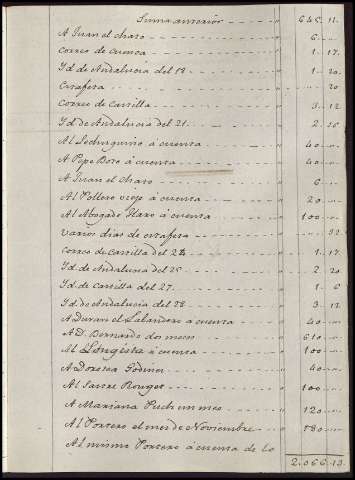 Suma anterior - - - " 645. 11.
A Juan el charo - - - " 6 - -
Correo de Cuenca - - - " 1 - 17.
Yd. de Andalucia del 18 - - - " 1 - 20
Estafeta - - - " - 20
Correo de Castilla - - - " 3 - 12
Yd. de Andalucia del 21 - - - " 2 - 20
Al Lechuguino á cuenta - - - " 40 - -
A Pepe Boro á cuenta - - - " 40 - -
A Juan el Charo - - - " 6 - -
Al Pollero viejo á cuenta - - - " 20 - -
Al Abogado Haro á cuenta - - - " 100 - -
Varios dias de estafeta - - - " - 32
Correo de Castilla del 24 - - - " 1 - 17
Yd. de Andalucia del 25 - - - " 2 - 20
Yd. de Castilla del 27 - - - " 1 - 6
Yd. de Andalucia del 28 - - - " 3 - 12
A Duran el Calandero á cuenta - - - " 40 - -
A D. Bernardo dos meses - - - " 610 - -
Al á cuenta - - - " 100 - -
A Dorotea Godinez - - - " 40 - -
Al Sastre Rouget - - - " 100 - -
A Mariana Puch un mes - - - " 120 - -
Al Portero el mes de Noviembre - - - " 180 - -
Al mismo Portero á cuenta de lo
2.066. 13.